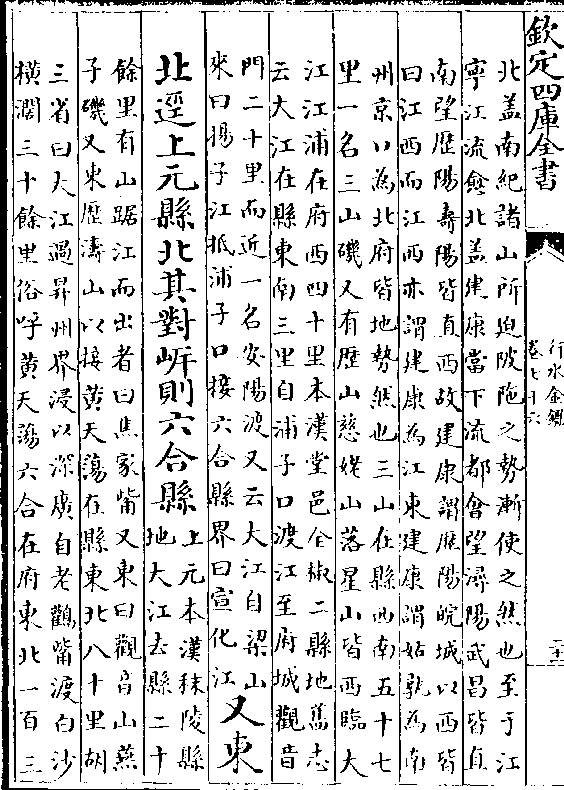 欽定四庫全書
行水金鑑
卷七十六
二十二
北蓋南紀諸山所迫陂陁之勢漸使之然也至于江
寧江流愈北蓋建康當下流都會望潯陽武昌皆直
南望歴陽壽陽皆直西故建康謂歴陽皖城以西皆
曰江西而江西亦謂建康為江東建康謂姑孰為南
州京口為北府皆地勢然也三山在縣西南五十七
里一名三山磯又有歴山慈姥山落星山皆西臨大
江江浦在府西四十里本漢堂邑全椒二縣地舊志
云大江在縣東南三里自浦子口渡江至府城觀音
門二十里而近一名安陽渡又云大江自梁山
來曰揚子江抵浦子口接六合縣界曰宣化江
又東
北逕上元縣北其對㟁則六合縣
上元本漢秣陵縣
地大江去縣二十
餘里有山踞江而出者曰馬家觜又東曰觀音山燕
子磯又東歴濤山以接黄天蕩在縣東北八十里胡
三省曰大江過昇州界浸以深廣自老鸛觜渡白沙
横濶三十餘里俗呼黄天蕩六合在府東北一百三